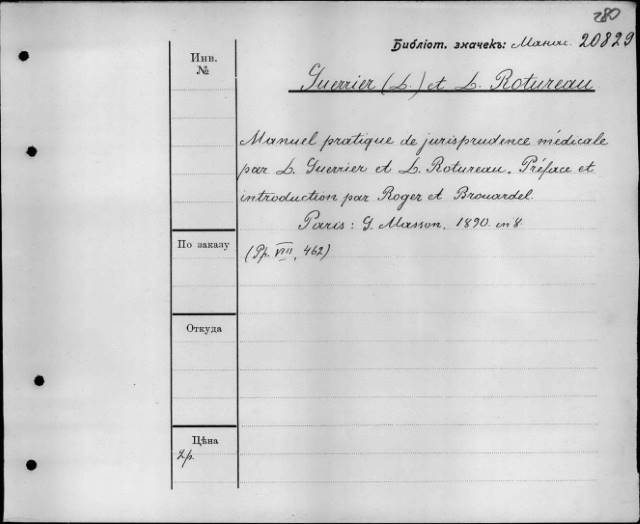 280
Библіот. значекъ: 20829
Инв.
№
Guerrier (L.) et L. Rotureau
Manuel pratique de jurisprudence médicale
par L. Guerrier et L. Rotureau. Préface et
introduction par Roger et Brouardel.
Paris: G. Masson, 1890. in 8.
По заказу
(Pp. VIII, 462)
Откуда
Цѣна
2р.